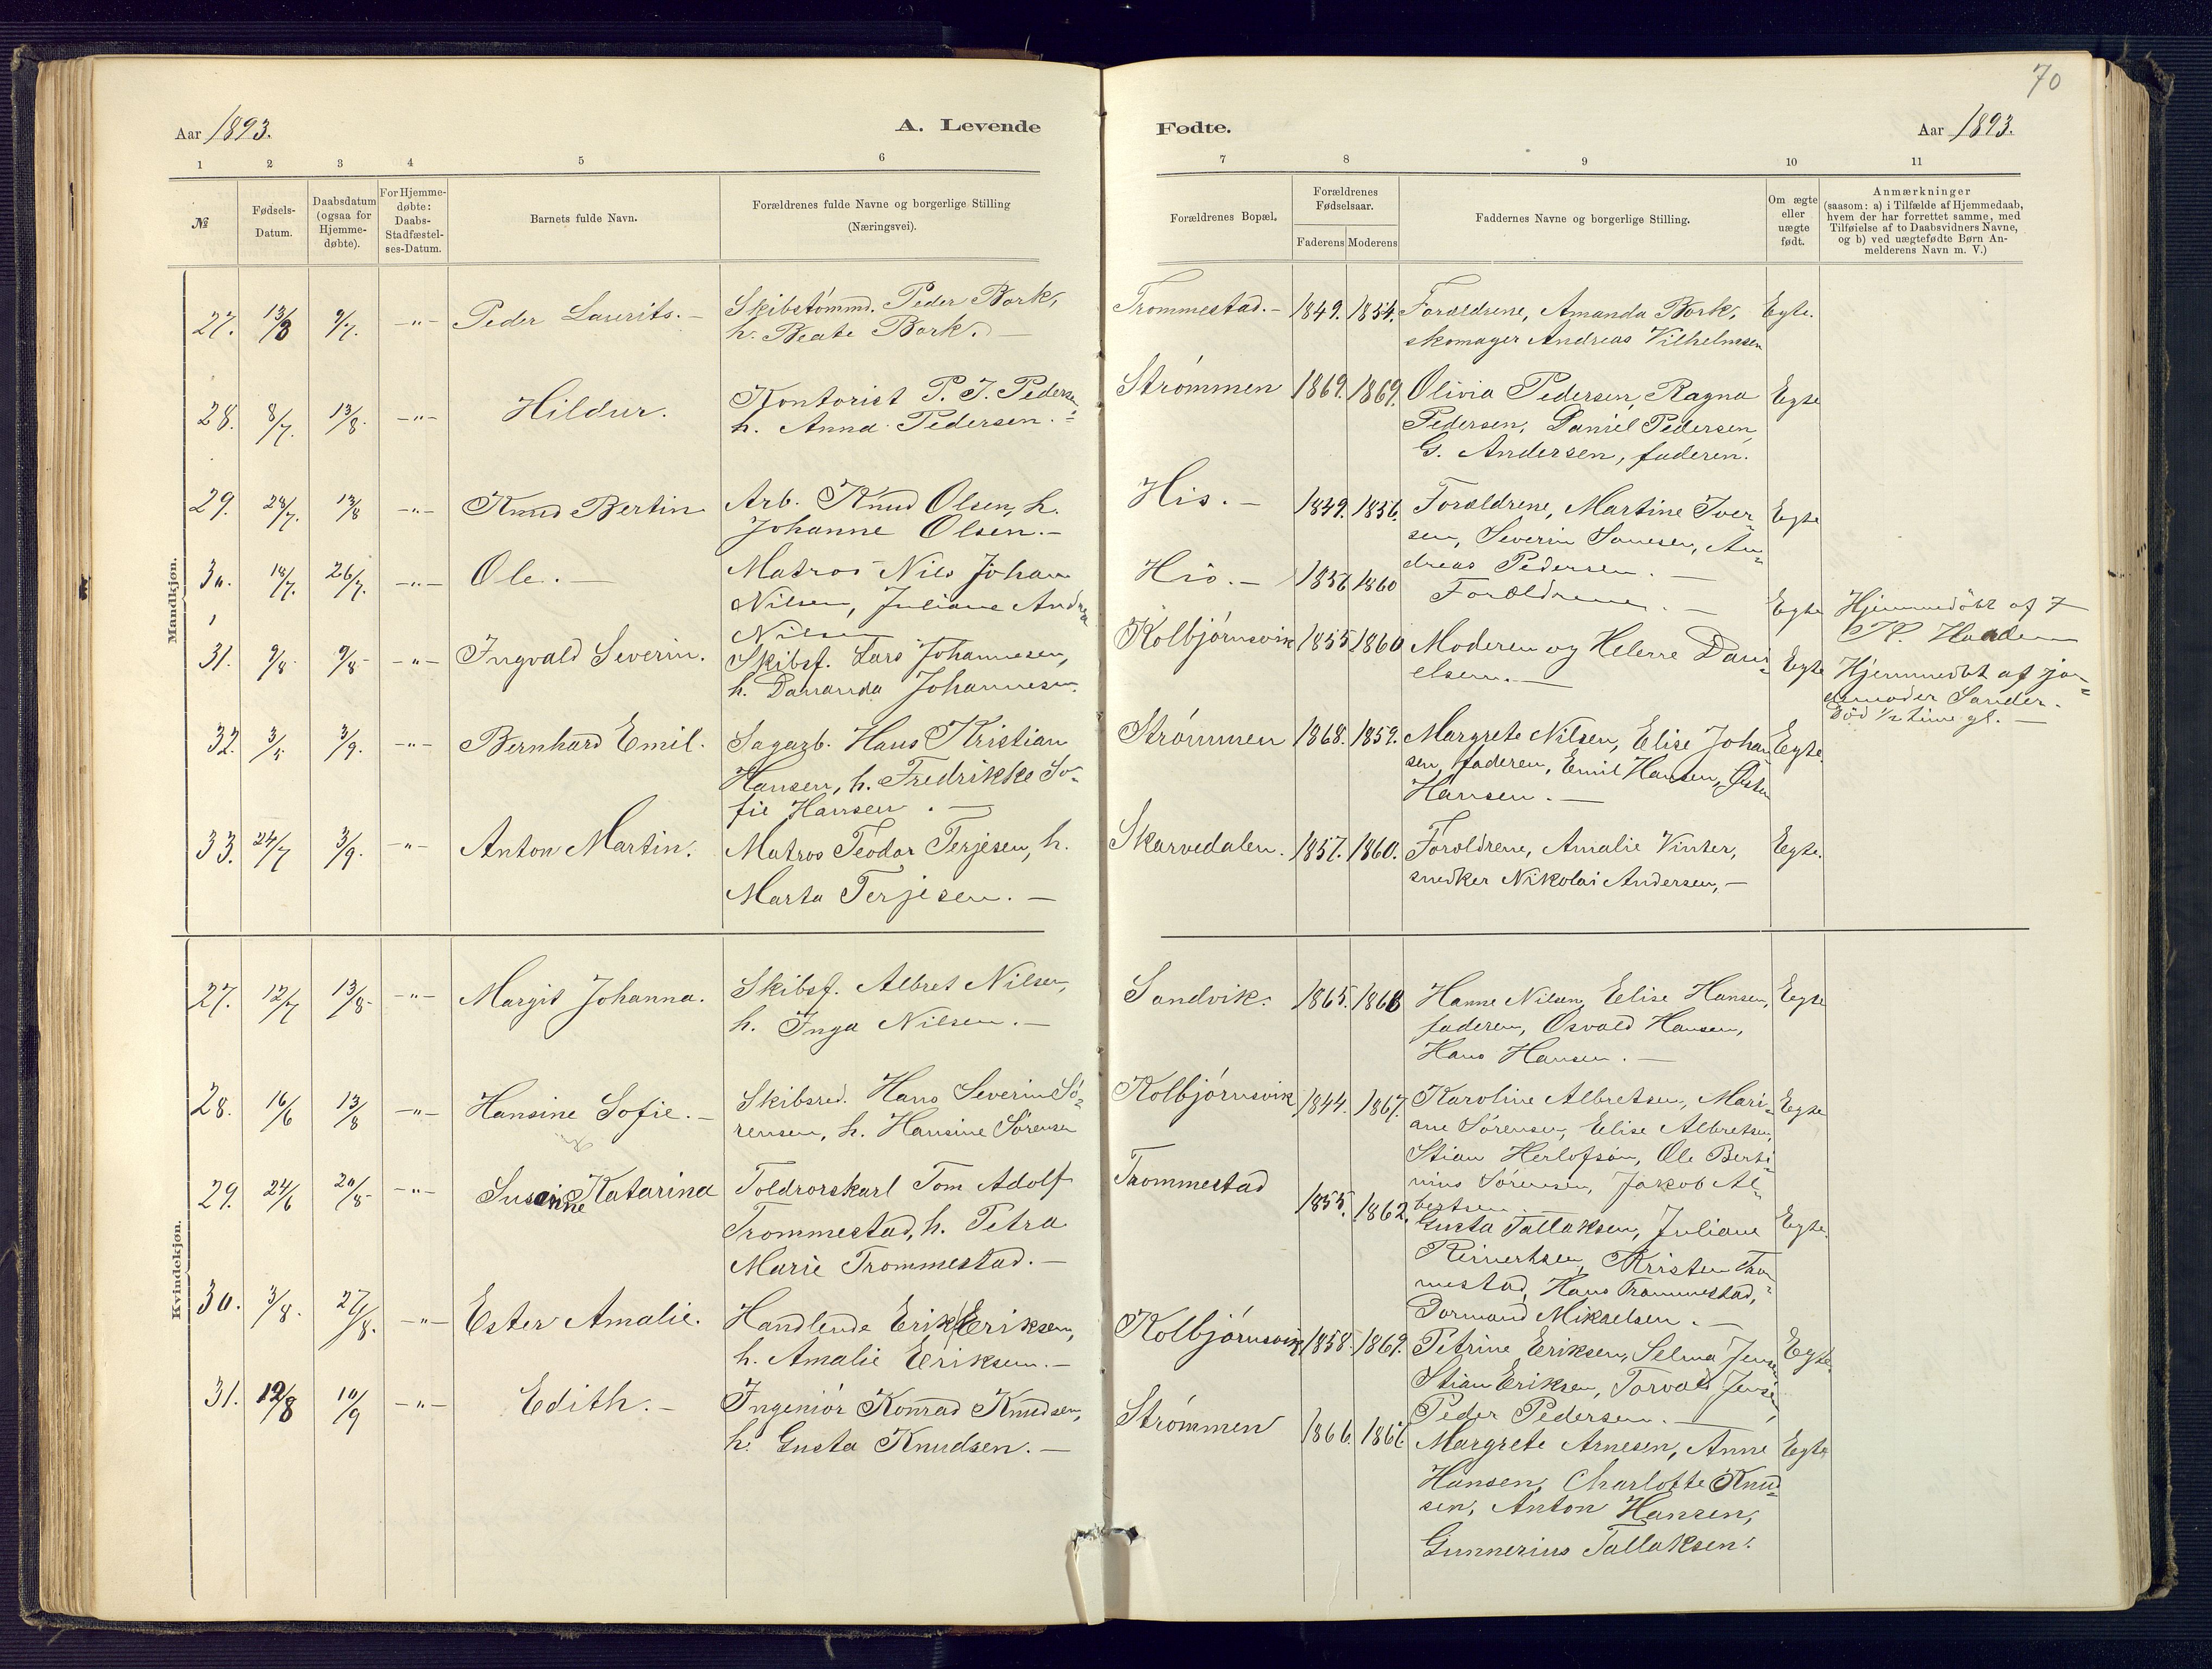 70
Aar 1893.
A. Levende
Fødte.
Aar 1893.
1 2 3 4 5 6
7 8 9 10 11
№
Fødsels-
Datum.
Daabsdatum
(ogsaa for
Hjemme-
døbte).
For Hjemme-
døbte:
Daabs-
Stadfæstel-
ses-Datum.
Barnets fulde Navn.
Forældrenes fulde Navne og borgerlige Stilling
(Næringsvei).
Forældrenes Bopæl.
Forældrenes
Fødselsaar.
Faderens Moderens
Faddernes Navne og borgerlige Stilling.
Om ægte
eller
uægte
født.
Anmærkninger
(saasom: a) i Tilfælde af Hjemmedaab,
hvem der har forrettet samme, med
Tilføielse af to Daabsvidners Navne,
og b) ved uægtefødte Børn An-
melderens Navn m. V.)
Mandkjøn.
27. 13/3 9/7. -"- Peder Laurits. -
Skibstømmd. Peder Bork,
h. Beate Bork. -
Trommestad. - 1849. 1854.
Forældrene, Amanda Bork,
skomager Andreas Vilhelmsen
Egte.
28. 8/7. 13/8. -"- Hildur.
Kontorist P. J. Pedersen,
h. Anna Pedersen.
Strømmen 1869. 1869.
Olivia Pedersen, Ragna
Pedersen, Daniel Pedersen,
G. Andersen, faderen.
Egte
29. 28/7. 13/8 -"- Knud Bertin
Arb. Knud Olsen, h.
Johanne Olsen. -
His. - 1849. 1856.
Forældrene, Martine Iver-
sen, Severin , An-
dreas Pedersen. -
Egte
30. 18/7. 26/7. -"- Ole. -
Matros Nils Johan
Nilsen, Juliane Andrea
Nilsen
His. - 1856 1860
Forældrene. -
Egte
Hjemmedøbt af
31. 9/8. 9/8. -"- Ingvald Severin.
Skibsf. Lars Johannesen,
h. Johannesen.
Kolbjørnsvik 1855 1860
Moderen og Helene Dani-
elsen. -
Egte
Hjemmedbt af jor-
demoder Sander.
Død 1/2 time gl. -
32. 3/5 3/9. -"- Bernhard Emil.
Sagarb. Hans Kristian
Hansen, h. Fredrikke So-
fie Hansen. -
Strømmen 1868. 1859.
Margrete Nilsen, Elise Johan
sen, faderen, Emil Hansen,
Hansen. -
Egte.
33. 24/7 3/9. -"- Anton Martin.
Matros Teodor Terjesen, h.
Marta Terjesen. -
Skarvedalen. 1857. 1860.
Forældrene, Amalie Vinter,
snedker Nikolai Andersen, -
Egte.
Kvindekjøn.
27. 12/7 13/8. -"- Margit Johanna.
Skibsf. Albret Nilsen,
h. Inga Nilsen. -
Sandvik. 1865. 1868
Hanne Nilsen, Elise Hansen,
faderen, Osvald Hansen,
Hans Hansen. -
Egte
28. 16/6 13/8 -"- Hansine Sofie. -
Skibsred. Hans Severin Sø-
rensen, h. Hansine Sørensen
Kolbjørnsvik 1844. 1867.
Karoline Albretsen, Mari-
ane Sørensen, Elise Albretsen,
Stian Herlofson, Ole Berti-
nius Sørensen, Jakob Al-
bertsen
Egte
29. 24/6 20/8. -"- Susanne Katarina
Toldrorskarl Tom Adolf
Trommestad, h. Petra
Marie Trommestad. -
Trommestad 1855. 1862.
Gusta Tallaksen, Juliane
Reinertsen, Kristen Tro-
mestad, Hans Trommestad,
Dormand Mikaelsen. -
Egte.
30. 3/8. 27/8. -"- Ester Amalie.
Handlende Erik Eriksen,
h. Amalie Eriksen. -
Kolbjørnsvik 1858. 1869.
Petrine Eriksen, Selma Jensen
Stian Eriksen, Torvald Jensen,
Peder Pedersen. -
Egte.
31. 12/8 10/9 -"- Edith. -
Ingeniør Konrad Knudsen,
h. Gusta Knudsen. -
Strømmen 1866. 1866.
Margrete Arnesen, Anne
Hansen, Charlotte Knud-
sen, Anton Hansen,
Gunnerius Tallaksen.
Egte